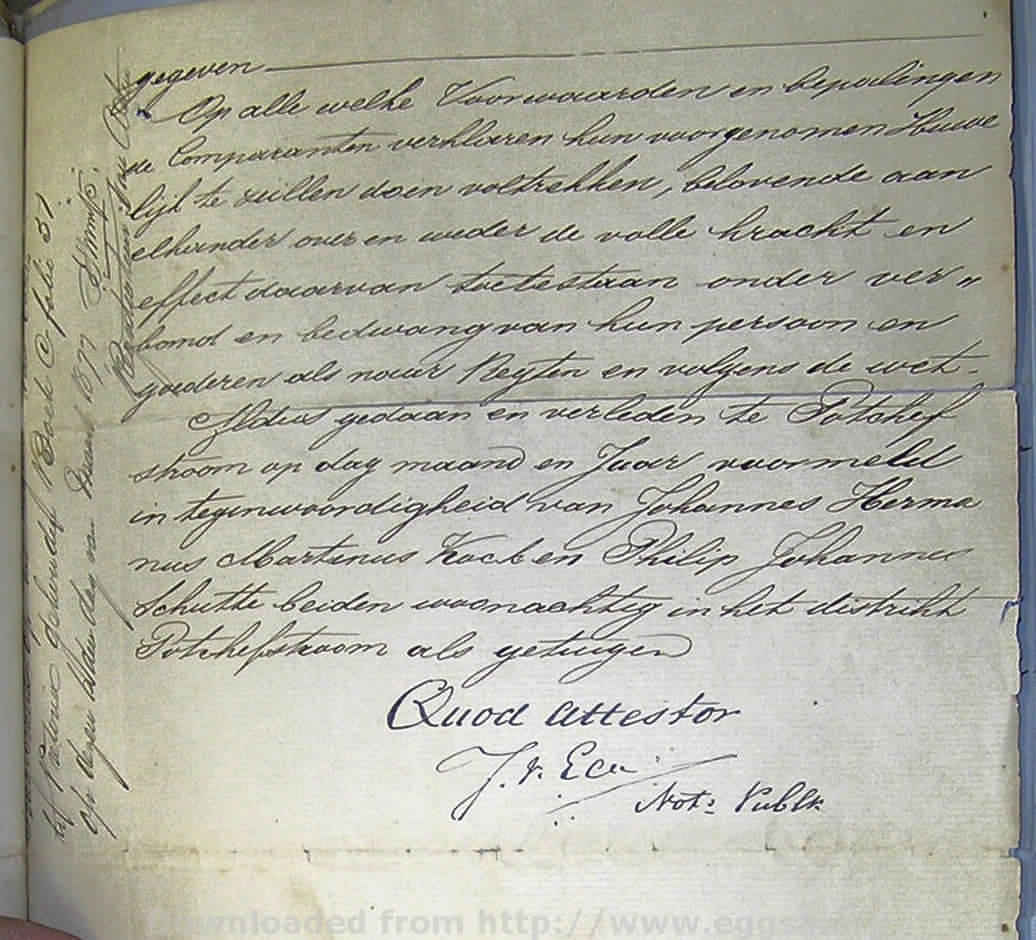 gegeven
Op alle welke Voorwaarden en bepalingen
de Comparanten verklaren hun voorgenomen Huwe
lijk te zullen doen voltrekken, belovende aan
elkander over en weder de volle kracht en
effect daarvan toetestaan onder ver"
band en bedwang van hun persoon en
goederen als naar Regten en volgens de wet.
Aldus gedaan en verleden te Potchef
stroom op dag maand en Jaar voormeld
in tegenwoordigheid van Johannes Herma
nus Martinus Kock en Philip Johannes
Schutte beiden woonachtig in het distrikt
Potchefstroom als getuigen
Quod Attestor
J. v. Eck
Not: Publk
Pretoria Boek C folio 51
Op dezen dag van 1877
Downloaded from http://www.eggsa.